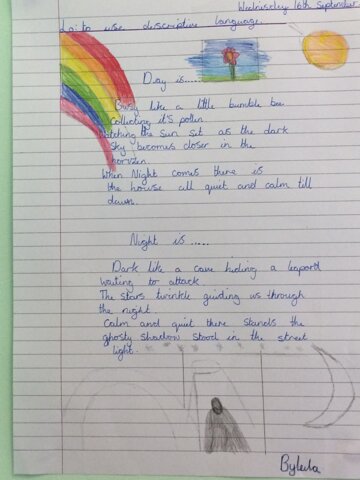 Wednesday 16th September
L.o.: to use descriptive language.
Day is......
Busy like a little bumble bee
Collecting it's pollen
Watching the sun set as the dark
sky becomes closer in the
horizen
When Night comes there is
the house all quiet and calm till
dawn.
Night is .....
Dark like a cave hiding a leapord
waiting to attack
The stars twinkle guiding us through
the night
Calm and quiet there stands the
ghostly shadow stood in the street
light.
By